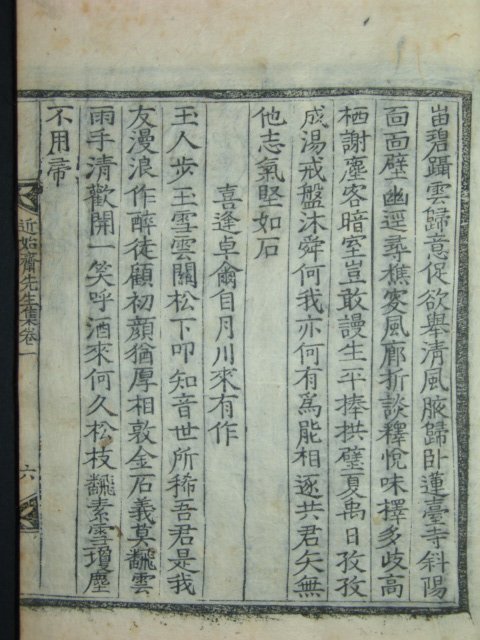 凷碧躡雲歸意促欲舉清風腋歸臥蓮臺寺斜陽
面面壁幽逕尋樵叜風廊折談釋悅味擇多歧高
栖謝塵客暗室豈敢謾生平捧拱璧夏禹日孜孜
成湯戒盤沐舜何我亦何有爲能相逐共君矢無
他志氣堅如石
喜逢卓爾自月川來有作
玉人步玉雪雲關松下叩知音世所稀吾君是我
友漫浪作醉徒顧初顏猶厚相敦金石義莫飜雲
雨手清歡開一笑呼酒來何久松枝飜素雪瓊塵
不用帚
近始齋先生集卷一
六